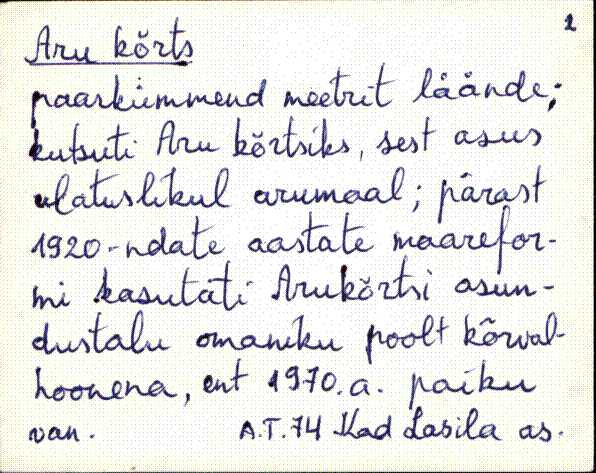 2
Aru kõrts
paarkümmend meetrit läände;
kutsuti Aru kõrtsiks, sest asus
ulatuslikul arumaal; pärast
1920-ndate aastate maarefor-
mi kasutati Arukõrtsi asun-
dustalu omaniku poolt kõrval-
hoonena, ent 1970.a. paiku
van. A.T.74 Kad Lasila as.